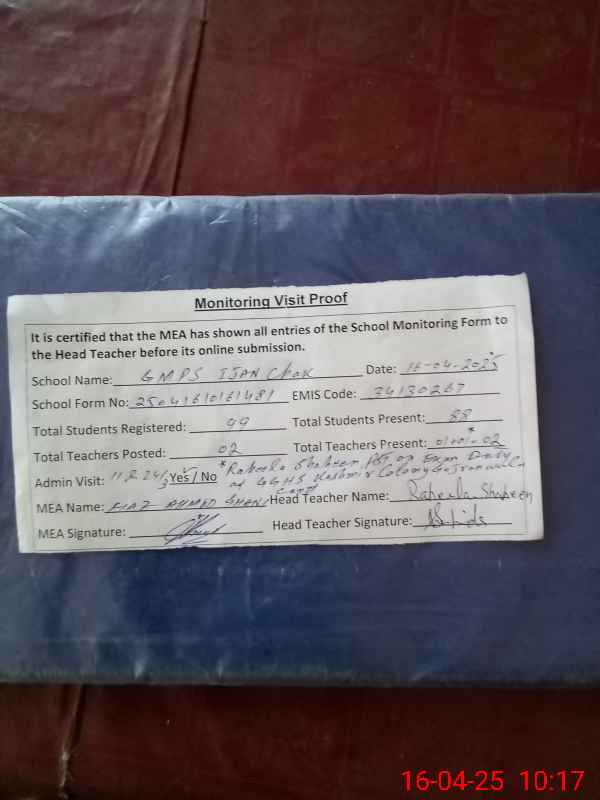 Monitoring Visit Proof
It is certified that the MEA has shown all entries of the School Monitoring Form to
the Head Teacher before its online submission.
School Name: GMPS IJAN Chak Date: 16-04-2025
School Form No: 25041610161481 EMIS Code: 34130267
Total Students Registered: 99 Total Students Present: 88
Total Teachers Posted: 02 Total Teachers Present: 01+01*=02
Admin Visit: Yes / No *Raheela Shaheen PST on Exam Duty
at GGHS Kashmir Colony Gujranwala
Cantt
MEA Name: AHMED Head Teacher Name: Raheela Shaheen
MEA Signature: Head Teacher Signature:
16-04-25 10:17